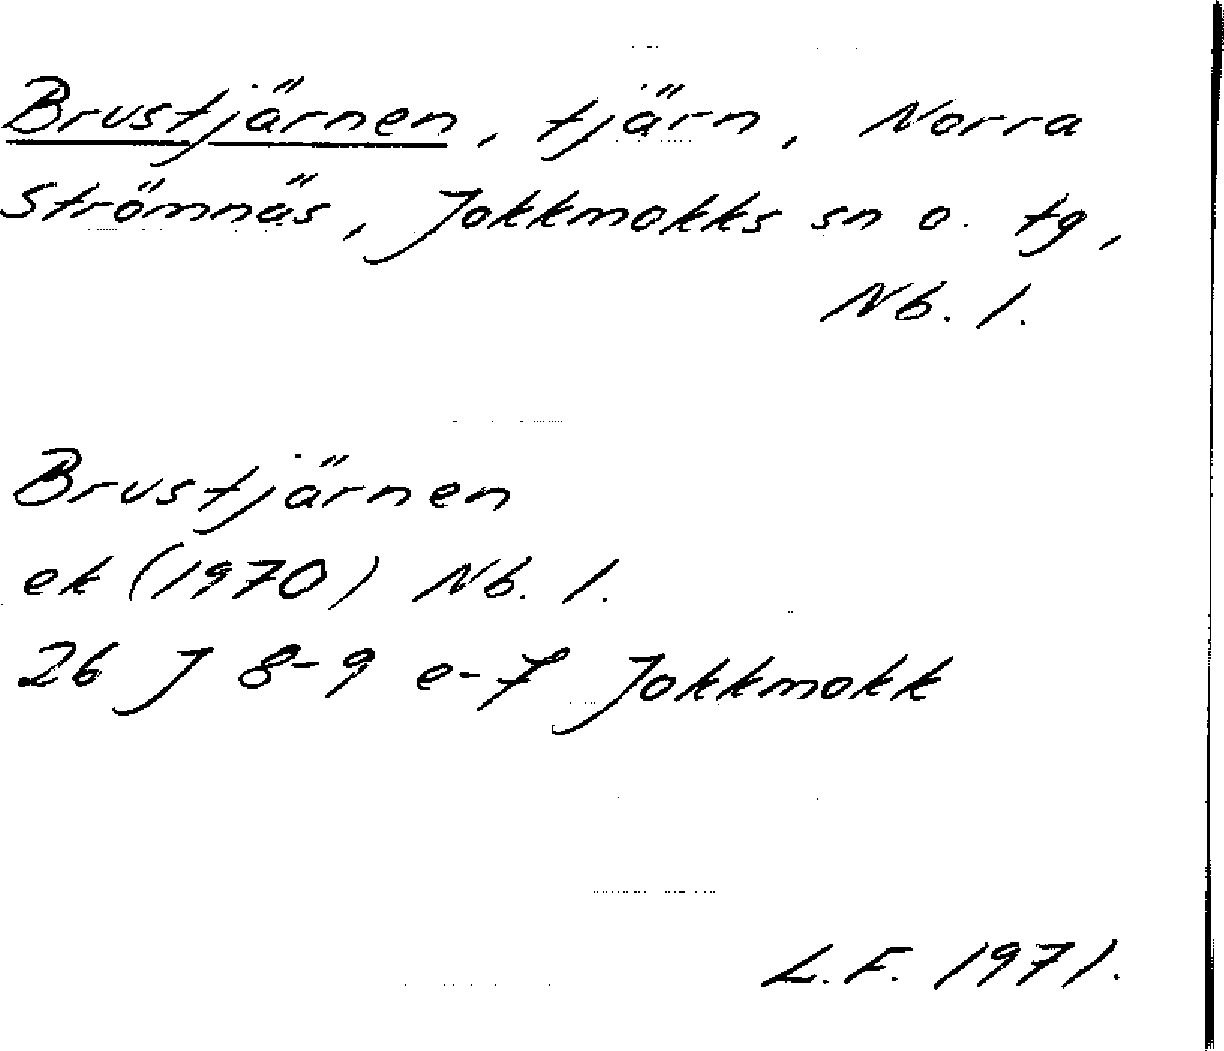 Brustjärnen, tjärn, Norra
Strömnäs, Jokkmokks sn o. tg,
Nb. l.
Brustjärnen
ek (1970) Nb. l.
26 J 8-9 e-f Jokkmokk
L.F. 1971.